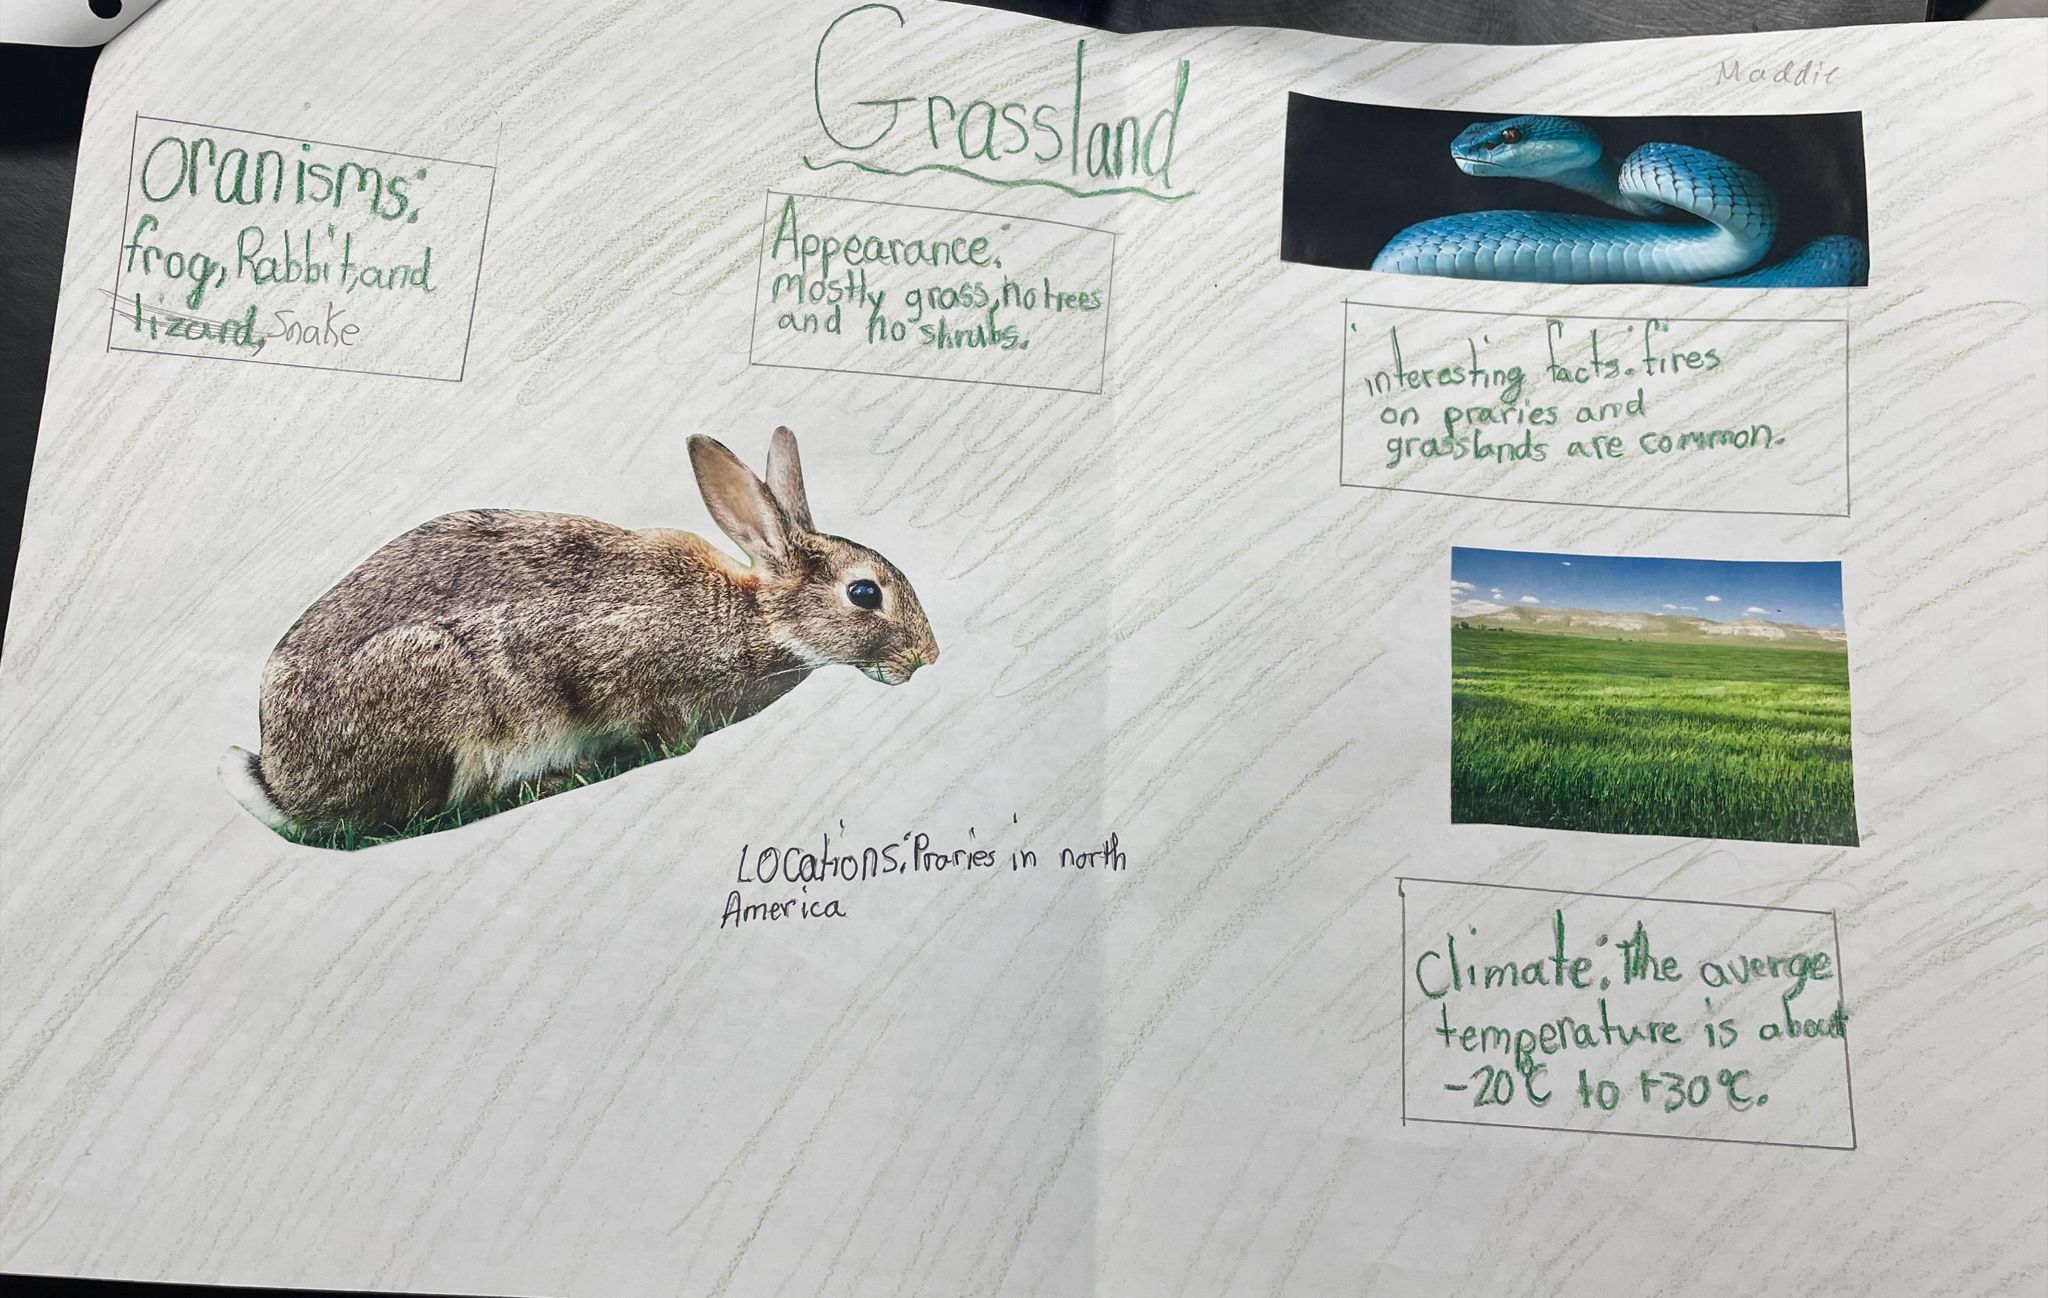 Grassland
Maddie
oranisms:
frog, Rabbit, and
lizard, Snake
Appearance:
mostly grass, no trees
and no shrubs.
interesting facts: fires
on praries and
grasslands are common.
Locations: Praries in north
America
Climate: The averge
temperature is about
-20°C to +30°C.